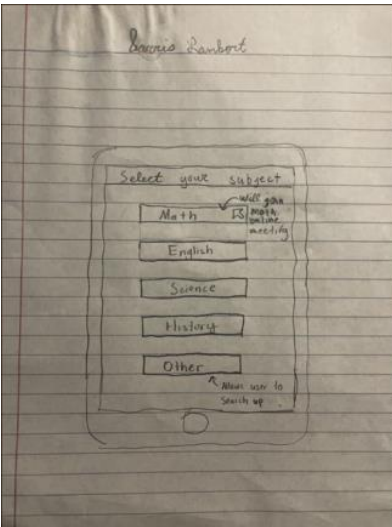 Select your subject
Will join
Math
math
online
meeting
English
Science
History
Other
Allows user to
Search up